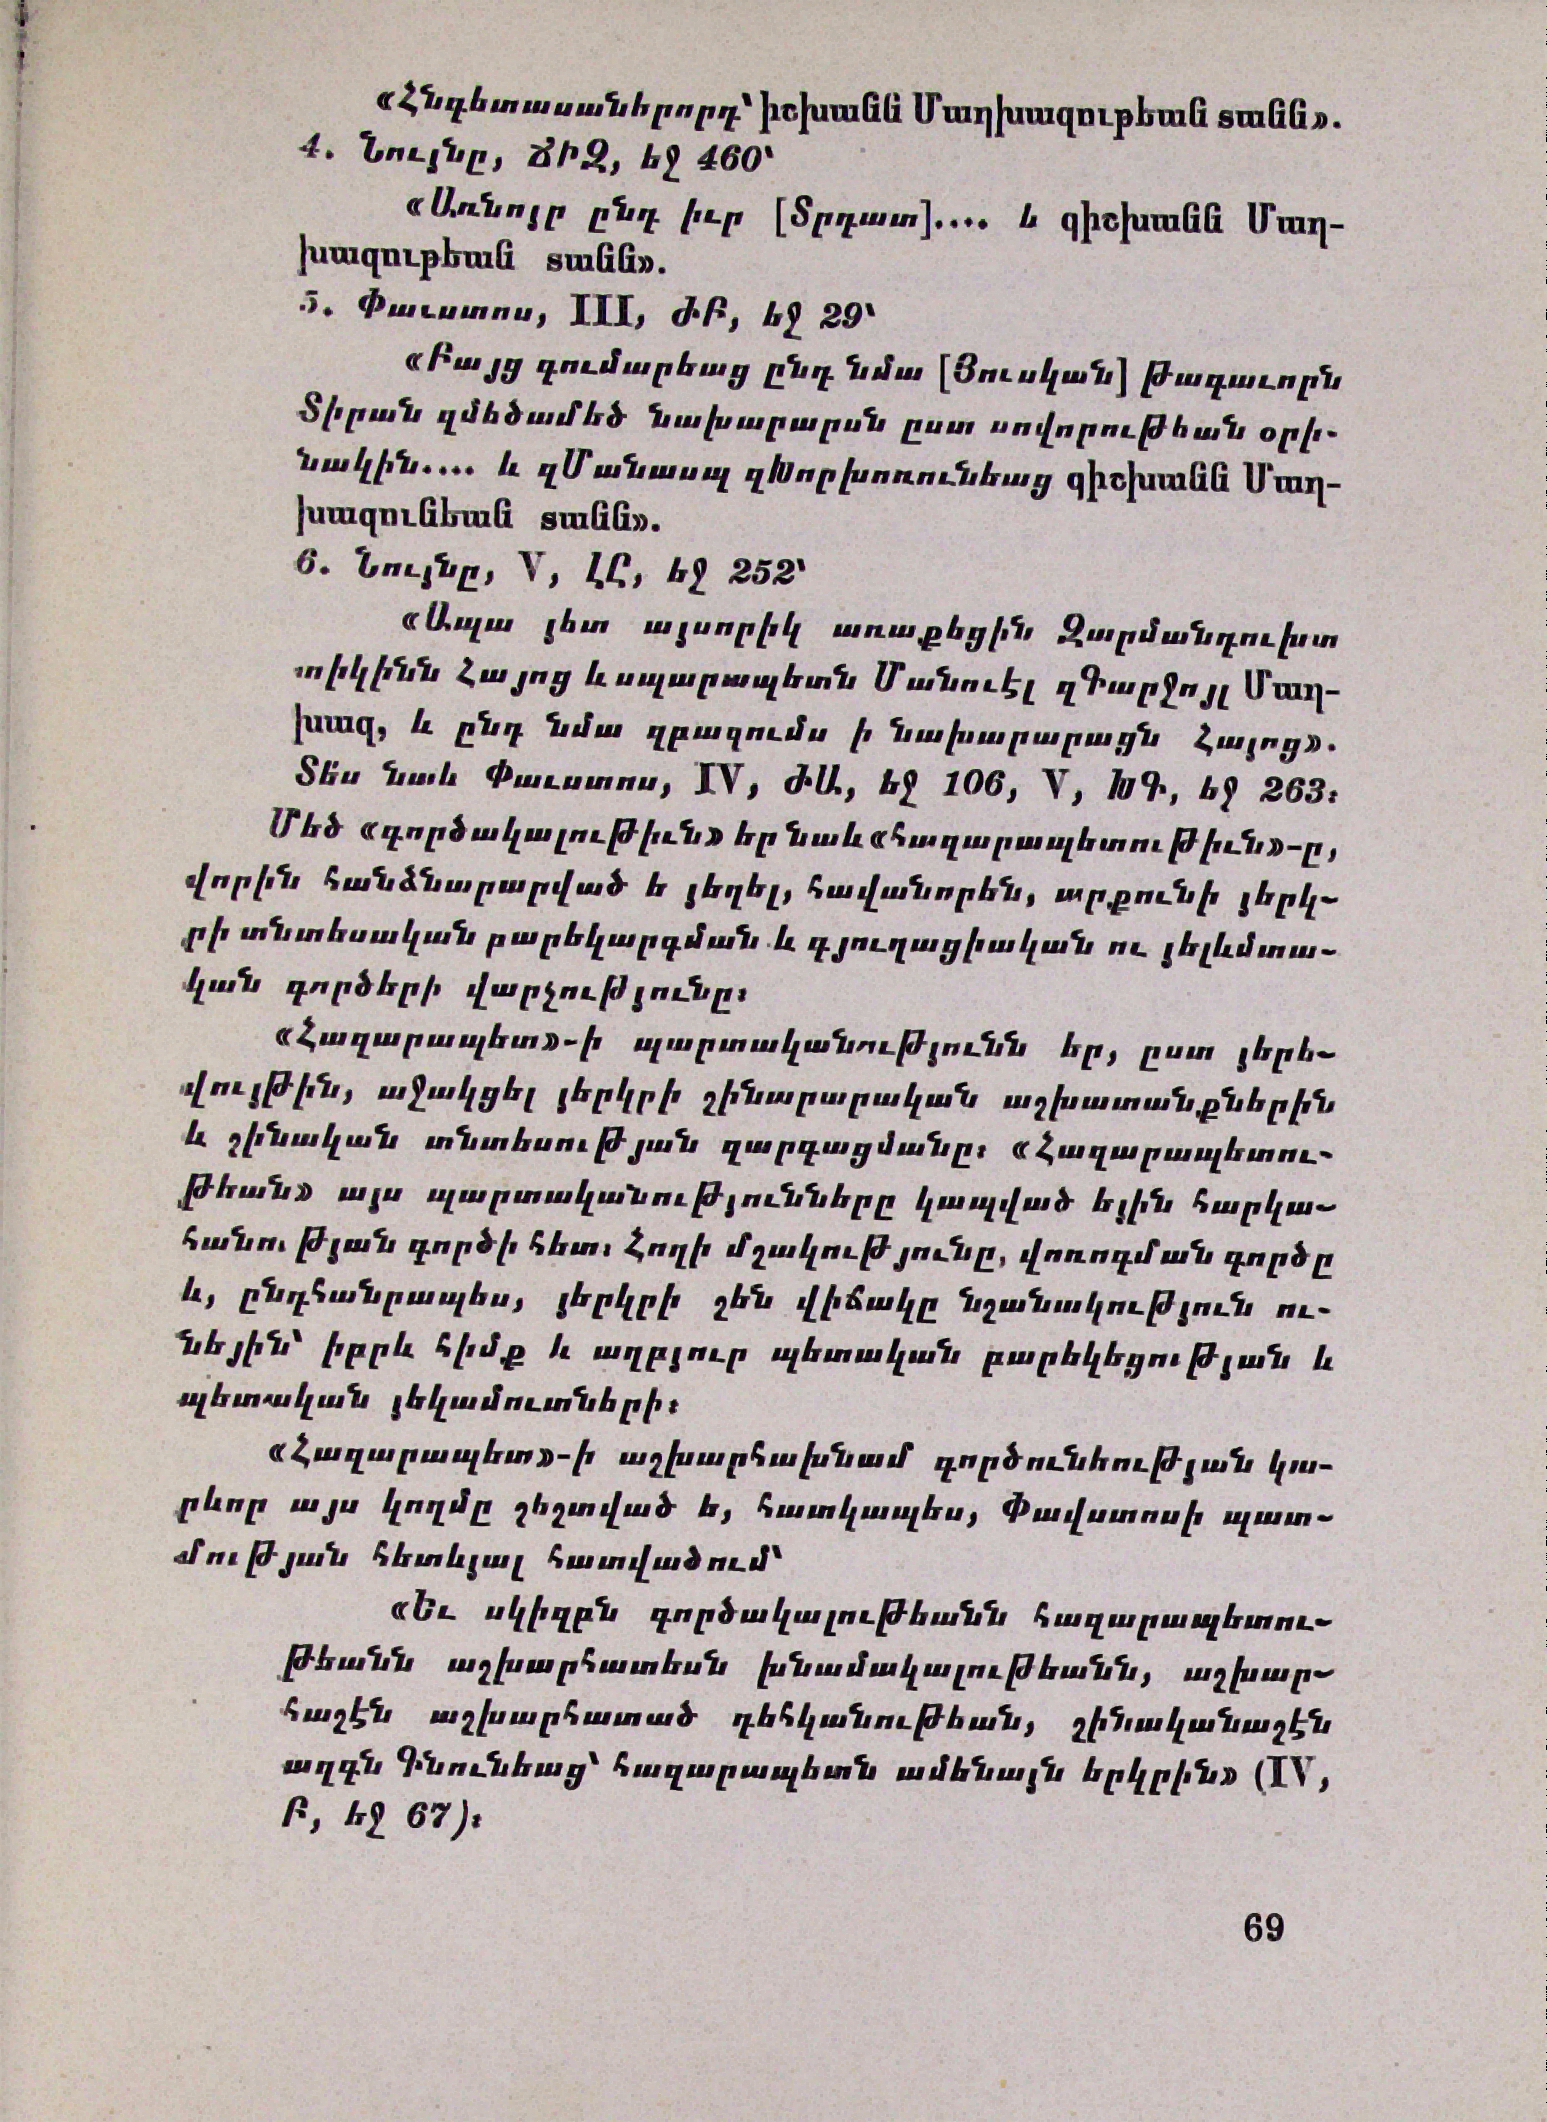 «Հնգետասաներորդ՝ իշխանն Մաղխազութեան տանն».
4. Նույնը, ՃԻԶ, եջ 460՝
«Առնոյր ընդ իւր [Տրդատ].... և զիշխանն Մաղ-
խազութեան տանն».
5. Փաւստոս, III, ԺԲ, եջ 29՝
«Բայց գումարեաց ընդ նմա [Յուսկան] թագաւորն
Տիրան զմեծամեծ նախարարսն ըստ սովորութեան օրի-
նակին.... և զՄանասպ զԽորխոռունեաց զիշխանն Մաղ-
խազունեան տանն».
6. Նույնը, V, ԼԸ, եջ 252՝
«Ապա յետ այսորիկ առաքեցին Զարմանդուխտ
տիկինն Հայոց և սպարապետն Մանուէլ զԳարջոյլ Մաղ-
խազ, և ընդ նմա զբազումս ի նախարարացն Հայոց».
Տես նաև Փաւստոս, IV, ԺԱ, եջ 106, V, ԽԳ, եջ 263։
Մեծ «գործակալութիւն» եր նաև «հազարապետութիւն»-ը,
վորին հանձնարարված ե յեղել, հավանորեն, արքունի յերկ-
րի տնտեսական բարեկարգման և գյուղացիական ու յելևմտա-
կան գործերի վարչությունը։
«Հազարապետ»-ի պարտականությունն եր, ըստ յերե-
վույթին, աջակցել յերկրի շինարարական աշխատանքներին
և շինական տնտեսության զարգացմանը։ «Հազարապետու-
թեան» այս պարտականությունները կապված եյին հարկա-
հանության գործի հետ։ Հողի մշակությունը, վոռոգման գործը
և, ընդհանրապես, յերկրի շեն վիճակը նշանակություն ու-
նեյին՝ իբրև հիմք և աղբյուր պետական բարեկեցության և
պետական յեկամուտների։
«Հազարապետ»-ի աշխարհախնամ գործունեության կա-
րևոր այս կողմը շեշտված ե, հատկապես, Փավստոսի պատ-
մության հետևյալ հատվածում՝
«Եւ սկիզբն գործակալութեանն հազարապետու-
թեանն աշխարհատեսն խնամակալութեանն, աշխար-
հաշէն աշխարհատած դեհկանութեան, շինականաշէն
ազգն Գնունեաց՝ հազարապետն ամենայն երկրին» (IV,
Բ, եջ 67)։
69